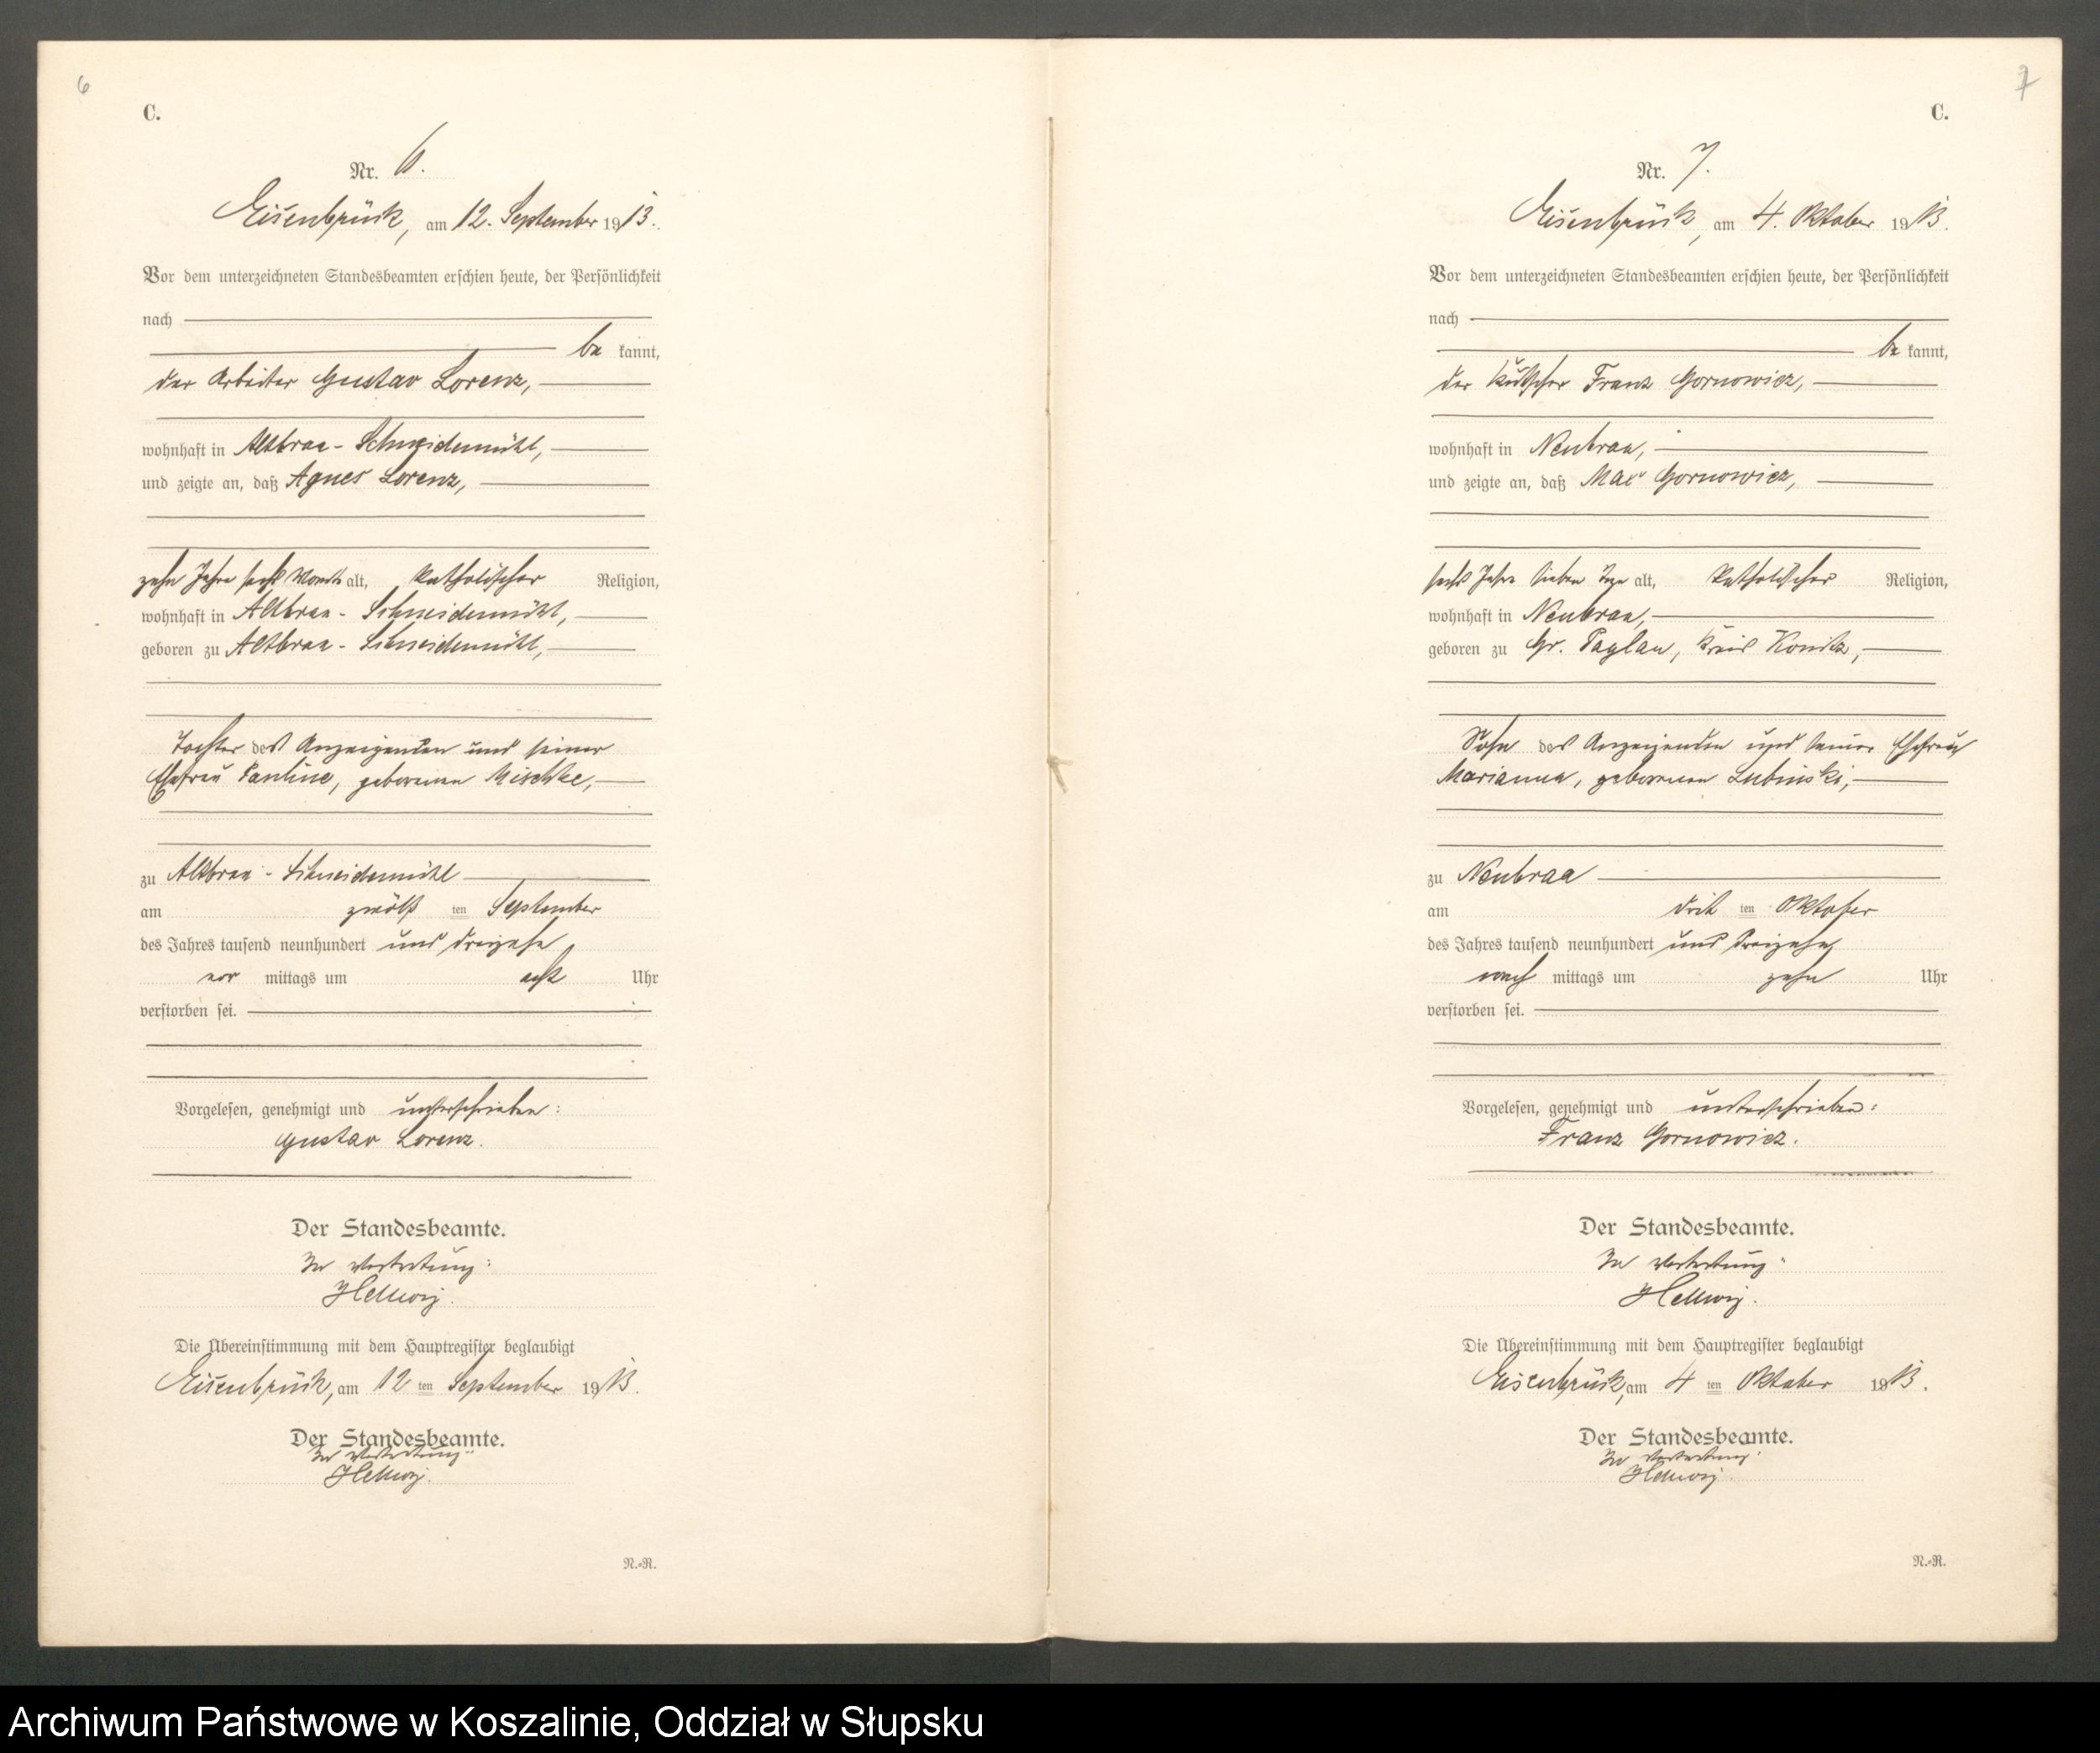 6
C.
Nr. 6.
Eisenbrück, am 12. September 1913.
Vor dem unterzeichneten Standesbeamten erschien heute, der Persönlichkeit
nach
be kannt,
der Arbeiter Gustav Lorenz,
wohnhaft in Altbraa-Schneidemühl,
und zeigte an, daß Agnes Lorenz,
zehn Jahre sechs Monate alt, katholischer Religion,
wohnhaft in Altbraa-Schneidemühl,
geboren zu Altbraa-Schneidemühl,
Tochter des Anzeigenden und seiner
Ehefrau Pauline, geborenen Mischke,
zu Altbraa-Schneidemühl
am zwölf ten September
des Jahres tausend neunhundert und dreizehn
vor mittags um acht Uhr
verstorben sei.
Vorgelesen, genehmigt und unterschrieben:
Gustav Lorenz.
Der Standesbeamte.
In Vertretung:
Hellwig.
Die Übereinstimmung mit dem Hauptregister beglaubigt
Eisenbrück, am 12 ten September 1913.
Der Standesbeamte.
In Vertretung:
Hellwig.
N.-R.
7
C.
Nr. 7.
Eisenbrück, am 4. Oktober 1913.
Vor dem unterzeichneten Standesbeamten erschien heute, der Persönlichkeit
nach
be kannt,
der Kutscher Franz Gornowicz,
wohnhaft in Neubraa,
und zeigte an, daß Max Gornowicz,
sechs Jahre sieben Tage alt, katholischer Religion,
wohnhaft in Neubraa,
geboren zu Gr. Paglau, Kreis Konitz,
Sohn des Anzeigenden und seiner Ehefrau
Marianna, geborenen Lubinski,
zu Neubraa
am drit ten Oktober
des Jahres tausend neunhundert und dreizehn
nach mittags um zehn Uhr
verstorben sei.
Vorgelesen, genehmigt und unterschrieben:
Franz Gornowicz.
Der Standesbeamte.
In Vertretung:
Hellwig.
Die Übereinstimmung mit dem Hauptregister beglaubigt
Eisenbrück, am 4 ten Oktober 1913.
Der Standesbeamte.
In Vertretung:
Hellwig.
N.-R.
Archiwum Państwowe w Koszalinie, Oddział w Słupsku